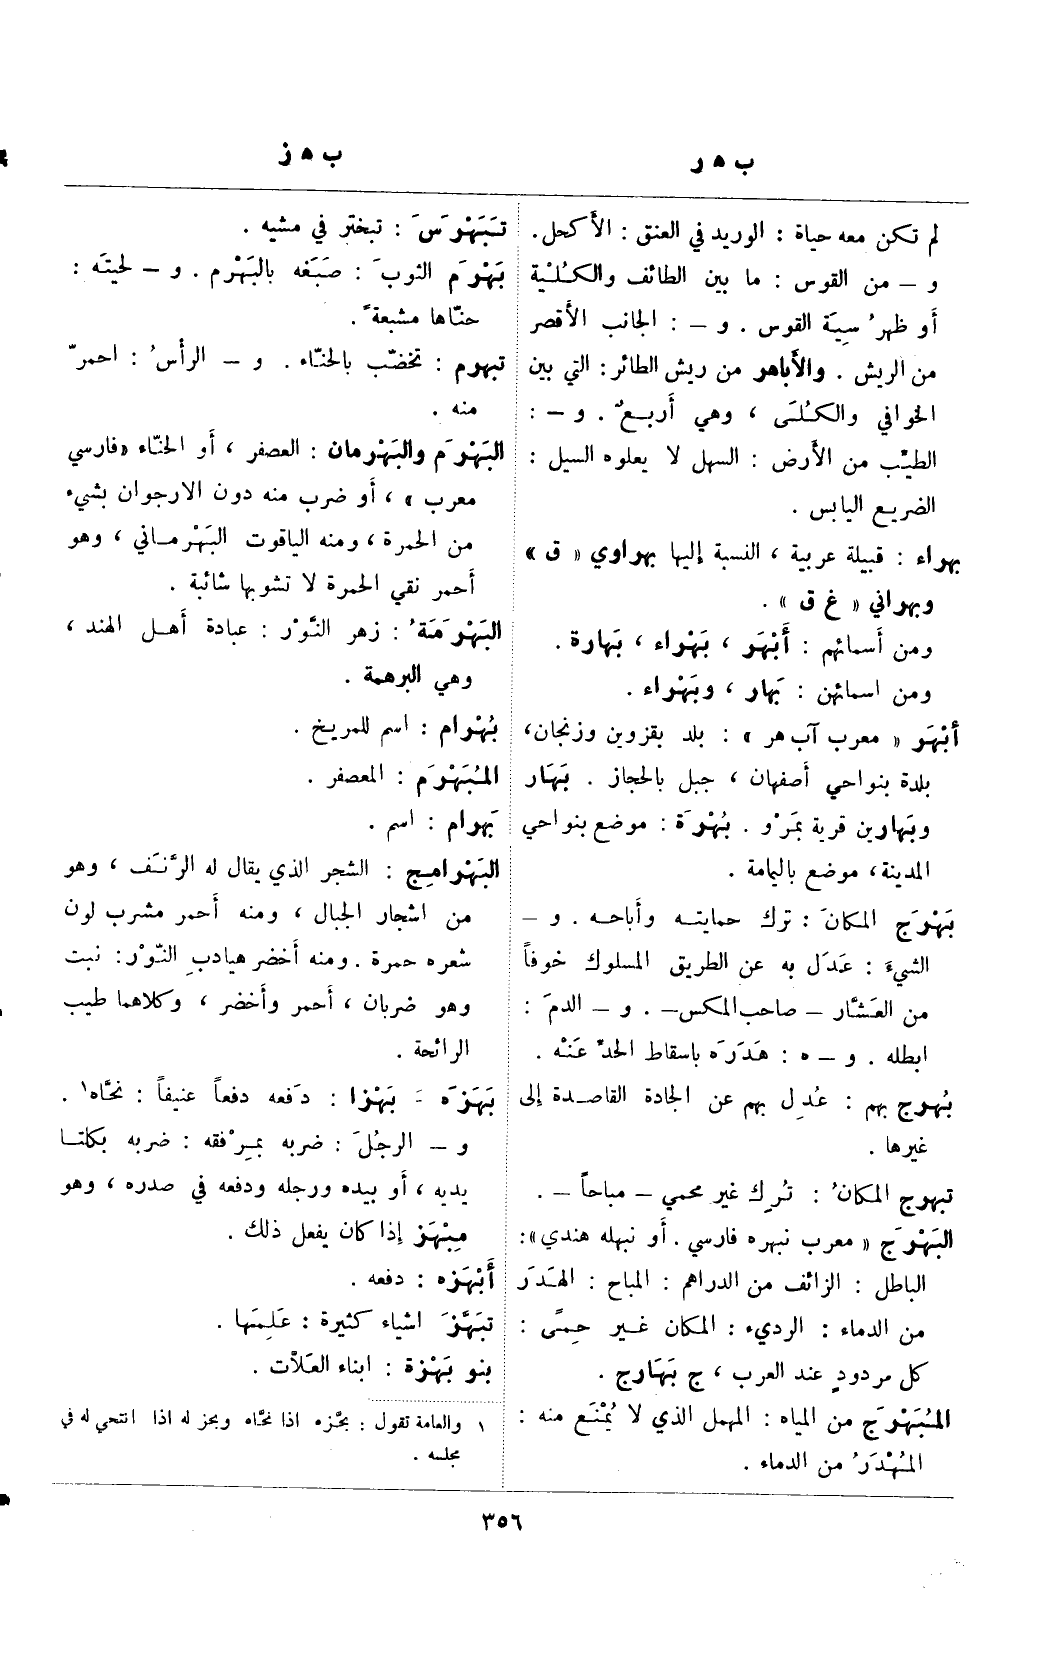 ب ه ر
ب ه ز
لم تكن معه حياة : الوريد في العنق : الأكحل.
و – من القوس : ما بين الطائف والكُلْيَة
أو ظهرُ سِيَة القوس . و – : الجانب الأقصر
من الريش . والأباهر من ريش الطائر: التي بين
الخوافي والكُلَى ، وهي أربعٌ . و – :
الطيّب من الأرض : السهل لا يعلوه السيل :
الضريع اليابس .
بهراء : قبيلة عربية ، النسبة إليها بهراوي « ق »
وبهراني « غ ق » .
ومن أسمائهم : أَبْهَر ، بَهْراء ، بَهارة .
ومن اسمائهن : بَهار ، وبَهْراء .
أَبْهَر « معرب آب هر » : بلد بقزوين وزنجان،
بلدة بنواحي أصفهان ، جبل بالحجاز . بَهَار
وبَهارين قرية بمَرْو . بُهْرَة : موضع بنواحي
المدينة، موضع باليمامة .
بَهْرَج المكانَ : ترك حمايته وأباحه . و –
الشيءَ : عَدَل به عن الطريق المسلوك خوفاً
من العَشّار – صاحب المكس– . و – الدمَ :
ابطله . و – ه : هَدَرَه باسقاط الحدّ عَنْه .
بُهرج بهم : عُدِل بهم عن الجادة القاصدة إلى
غيرها .
تبهرج المكانُ : تُرِك غير محمي – مباحاً – .
البَهْرَج « معرب نبهره فارسي . أو نبهله هندي»:
الباطل : الزائف من الدراهم : المباح : الهَدَر
من الدماء : الرديء : المكان غير حِمًى :
كل مردودٍ عند العرب ، ج بَهَارج .
المُبَهْرَج من المياه : المهمل الذي لا يُمْنَع منه :
المُهْدَرُ من الدماء .
تَبَهْرَسَ : تبختر في مشيه .
بَهْرَم الثوبَ : صَبَغه بالبَهْرم . و – لحيتَه :
حنّاها مشبعةً .
تبهرم : تخضّب بالحنّاء . و – الرأسُ : احمرّ
منه .
البَهْرَم والبَهْرمان : العصفر ، أو الحنّاء «فارسي
معرب » ، أو ضرب منه دون الارجوان بشيء
من الحمرة ، ومنه الياقوت البَهْرماني ، وهو
أحمر نقي الحمرة لا تشوبها شائبة .
البَهْرَمَةُ : زهر النَّوْر : عبادة أهل الهند ،
وهي البرهمة .
بُهْرام : اسم للمريخ .
المُبَهْرَم : المعصفر .
بَهرام : اسم .
البَهْرامِج : الشجر الذي يقال له الرَّنَف ، وهو
من اشجار الجبال ، ومنه أحمر مشرب لون
شعره حمرة . ومنه أخضر هيادب النّوْر: نبت
وهو ضربان ، أحمر وأخضر ، وكلاهما طيب
الرائحة .
بَهَزَه َ بَهْزا : دَفعه دفعاً عنيفاً : نحّاه١ .
و – الرجُلَ : ضربه بمِرْفقه : ضربه بكلتا
يديه ، أو بيده ورجله ودفعه في صدره ، وهو
مِبْهَز إذا كان يفعل ذلك .
أَبْهَزه : دفعه .
تبَهَّزَ اشياء كثيرة : عَلِمَها .
بنو بَهْزة : ابناء العَلاّت .
١ والعامة تقول : بحّزه اذا نحّاه وبحز له اذا انتحي له في
مجلسه .
٣٥٦